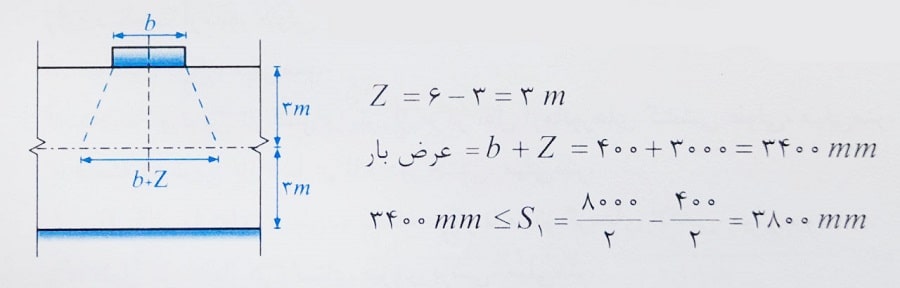 b
۳m
b+Z
۳m
Z = ۶ − ۳ = ۳ m
عرض بار = b + Z = ۴۰۰ + ۳۰۰۰ = ۳۴۰۰ mm
۳۴۰۰ mm ≤ S₁ = ۸۰۰۰/۲ − ۴۰۰/۲ = ۳۸۰۰ mm